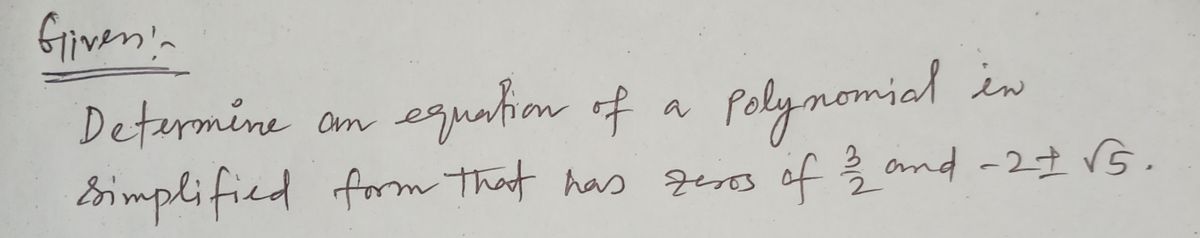 Given:-
Determine an equation of a polynomial in
simplified form that has zeros of 3/2 and -2± √5.